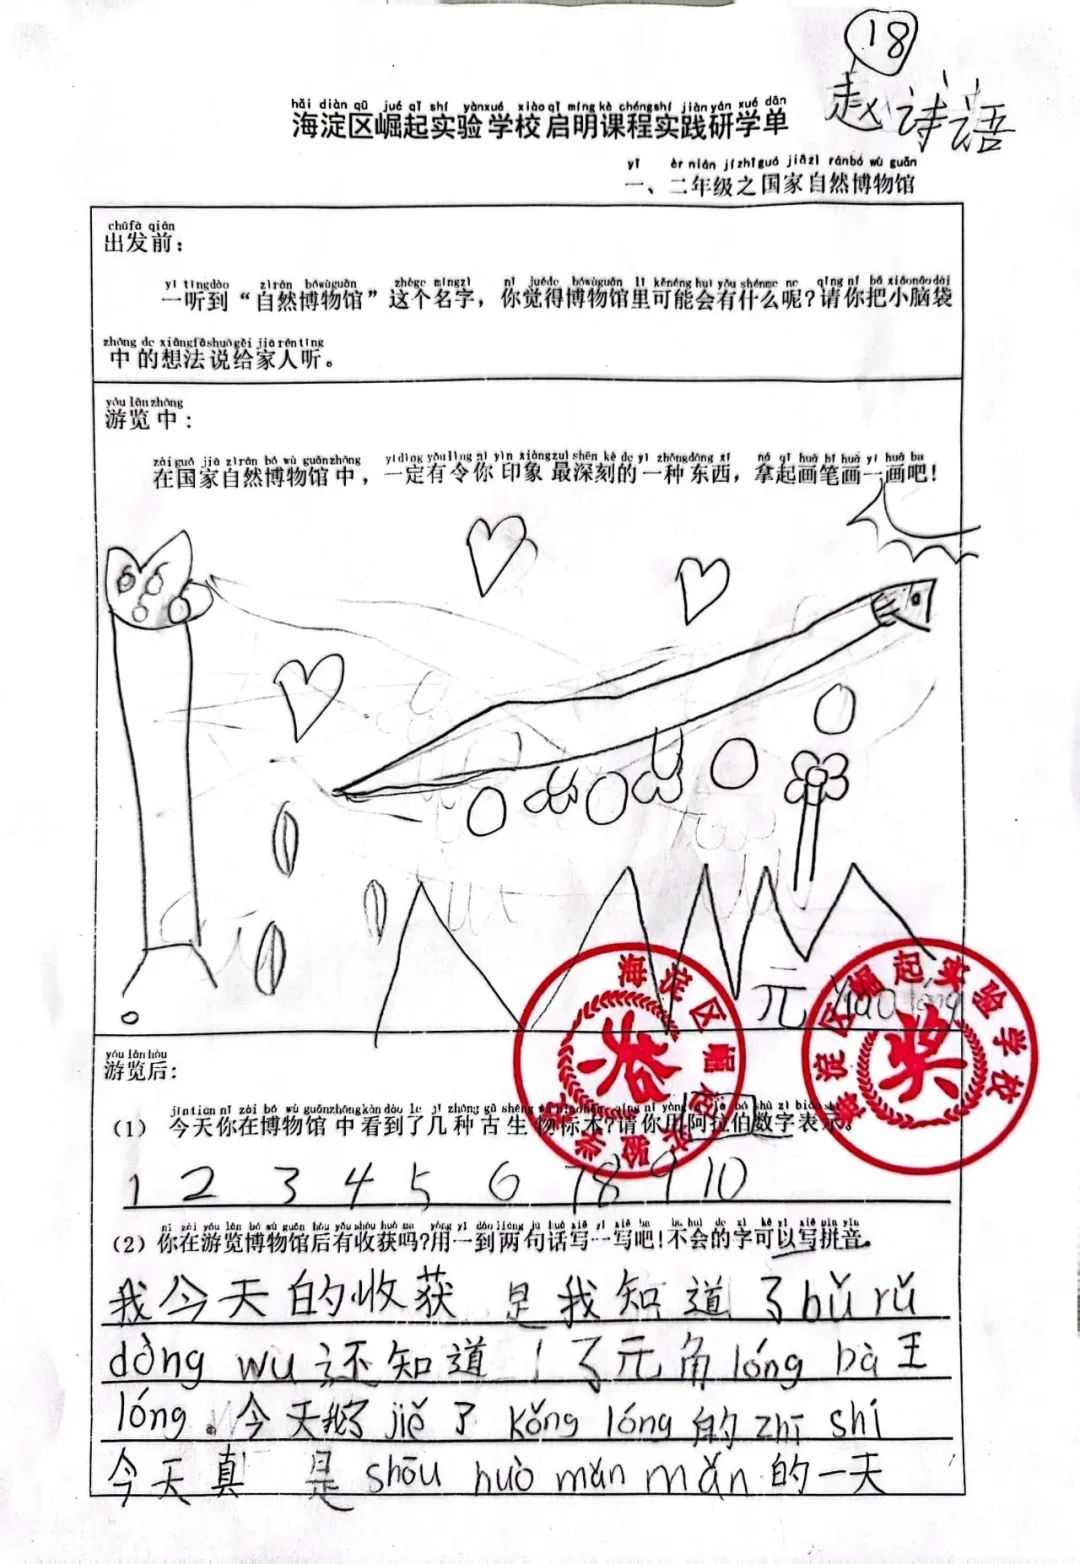 18
赵诗语
hǎi diàn qū jué qǐ shí yàn xué xiào qǐ míng kè chéng shí jiàn yán xué dān
海淀区崛起实验学校启明课程实践研学单
yī èr nián jí zhī guó jiā zì rán bó wù guǎn
一、二年级之国家自然博物馆
chū fā qián
出发前：
yì tīng dào zì rán bó wù guǎn zhè ge míng zì nǐ jué de bó wù guǎn lǐ kě néng huì yǒu shén me ne qǐng nǐ bǎ xiǎo nǎo dài
一听到“自然博物馆”这个名字，你觉得博物馆里可能会有什么呢？请你把小脑袋
zhōng de xiǎng fǎ shuō gěi jiā rén tīng
中的想法说给家人听。
yóu lǎn zhōng
游览中：
zài guó jiā zì rán bó wù guǎn zhōng yí dìng yǒu lìng nǐ yìn xiàng zuì shēn kè de yì zhǒng dōng xi ná qǐ huà bǐ huà yí huà ba
在国家自然博物馆中，一定有令你印象最深刻的一种东西，拿起画笔画一画吧！
元 lóng
海淀区崛起实验学校
奖
海淀区崛起实验学校
奖
yóu lǎn hòu
游览后：
jīn tiān nǐ zài bó wù guǎn zhōng kàn dào le jǐ zhǒng gǔ shēng
（1）今天你在博物馆中看到了几种古生物标本？请你用阿拉伯数字表示。
1 2 3 4 5 6 7 8 9 10
nǐ zài yóu lǎn bó wù guǎn hòu yǒu shōu huò ma yòng yī dào liǎng jù huà xiě yi xiě ba bú huì de zì kě yǐ xiě pīn yīn
（2）你在游览博物馆后有收获吗？用一到两句话写一写吧！不会的字可以写拼音。
我今天的收获 是我知道了bǔ rǔ
dòng wu 还知道 了元角lóng bà王
lóng。今天我了jiě了kǒng lóng的zhī shí
今天真 是shōu huò mǎn mǎn的一天